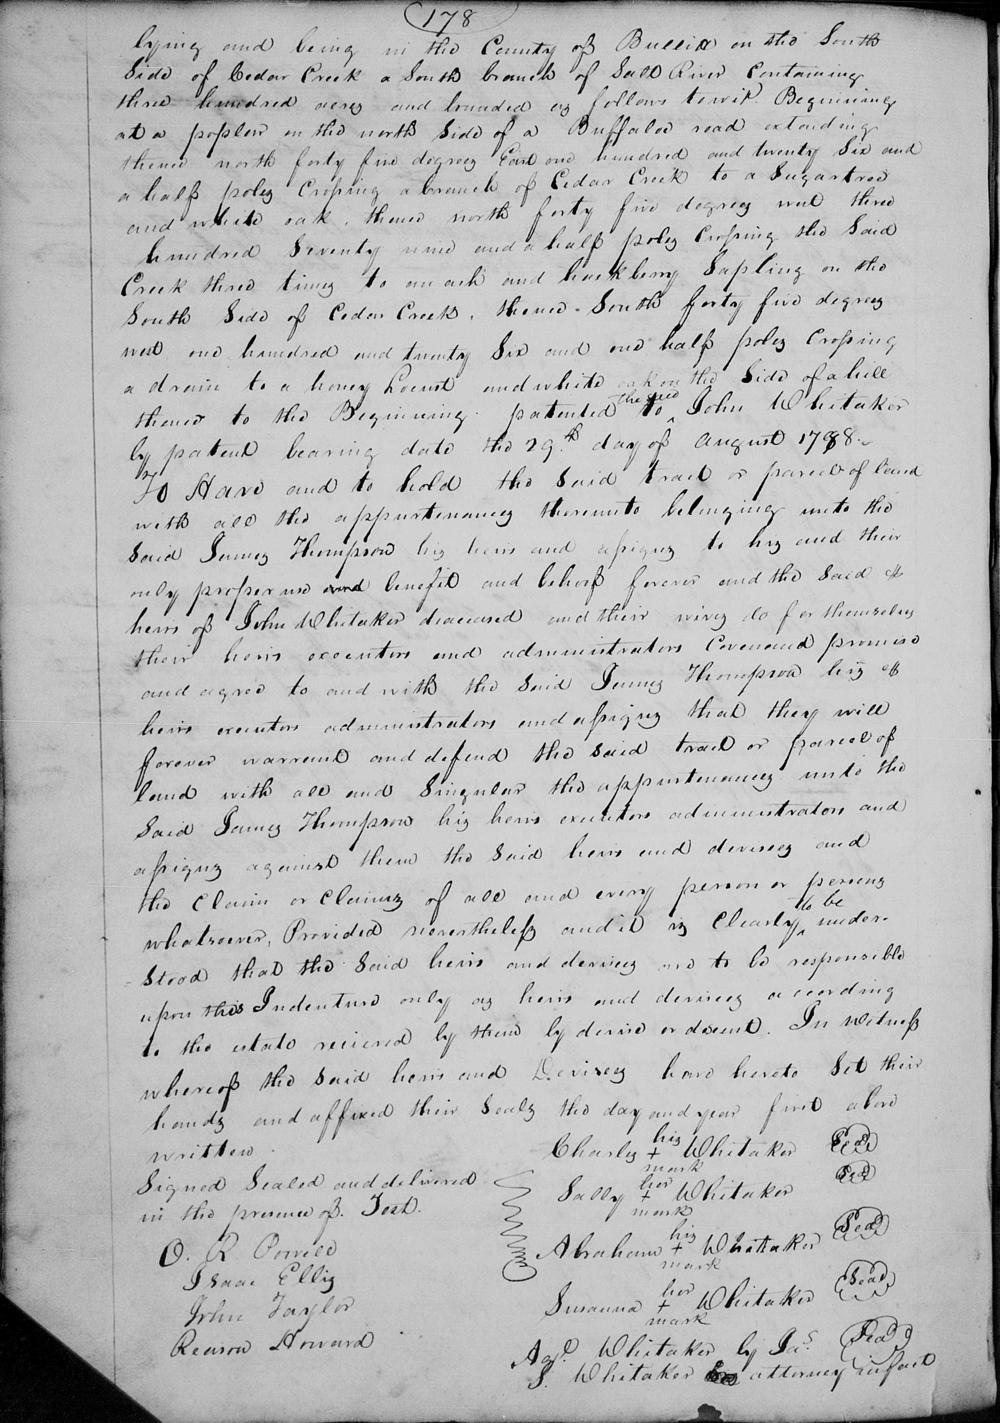 178
lying and being in the County of Bullitt on the South
Side of Cedar Creek a South branch of Salt River Containing
three hundred acres and bounded as follows towit. Beginning
at a poplar on the north Side of a Buffaloe road extending
thence north forty five degrees East one hundred and twenty Six and
a half poles Crossing a branch of Cedar Creek to a Sugartree
and white oak, thence north forty five degrees west three
hundred Seventy nine and a half poles Crossing the Said
Creek three times to an ash and hackberry Sapling on the
South Side of Cedar Creek, thence South forty five degrees
west one hundred and twenty Six and one half poles Crossing
a drain to a honey Locust and white oak on the Side of a hill
thence to the Beginning. patented to the said John Whitaker
by patent bearing date the 29th day of August 1788.
To Have and to hold the Said tract or parcel of land
with all the appurtenances thereunto belonging unto the
Said James Thompson his heirs and assigns to his and their
only proper use and benefit and behoof forever and the Said
heirs of John Whitaker deceased and their wives do for themselves
their heirs executors and administrators Covenant promise
and agree to and with the Said James Thompson his
heirs executors administrators and assigns that they will
forever warrant and defend the Said tract or parcel of
land with all and Singular the appurtenances unto the
Said James Thompson his heirs executors administrators and
assigns against them the Said heirs and devisees and
the Claim or Claims of all and every person or persons
whatsoever, Provided nevertheless and it is Clearly to be under-
stood that the Said heirs and devisees are to be responsible
upon this Indenture only as heirs and devisees according
to the estate recieved by them by devise or descent. In witness
whereof the Said heirs and Devisees have hereto Set their
hands and affixed their Seals the day and year first above
written.
Signed Sealed and delivered
in the presence of. Test.
O. R Powell
Isaac Ellis
John Taylor
Reason Howard
Charles his + mark Whitaker Seal
Sally her + mark Whitaker Seal
Abraham his + mark Whitaker Seal
Susanna her + mark Whitaker Seal
Aqd. Whitaker by Jas. Seal
S. Whitaker his attorney in fact